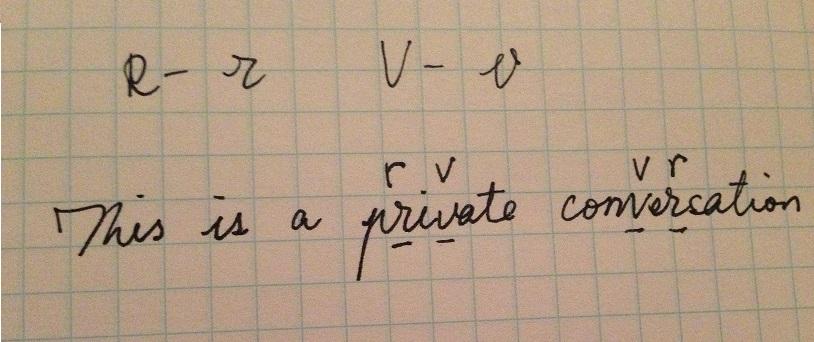 R - r V - v
r v v r
This is a private conversation